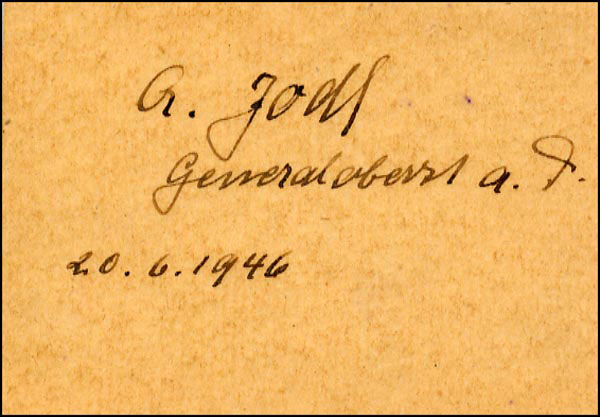 A. Jodl
Generaloberst a. D.
20. 6. 1946